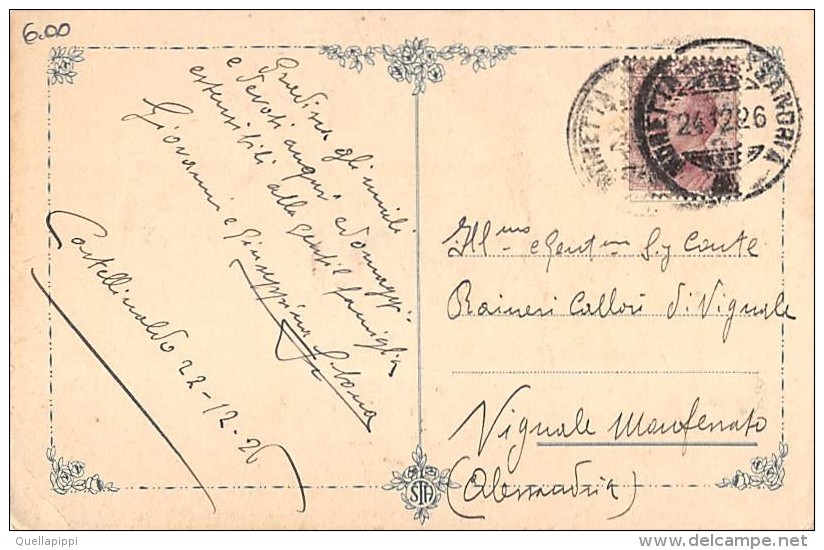 6.00
Gradisca gli umili
e devoti auguri ed omaggi
estensibili alla gentil famiglia
Giovanni e Giuseppina
Castellinaldo 22-12-26
24.12.26
Ill.mo e Gent.mo Sig Conte
Raineri Callori di Vignale
Vignale Monferrato
(Alessandria)
STA
Quellapippi
delcampe.net